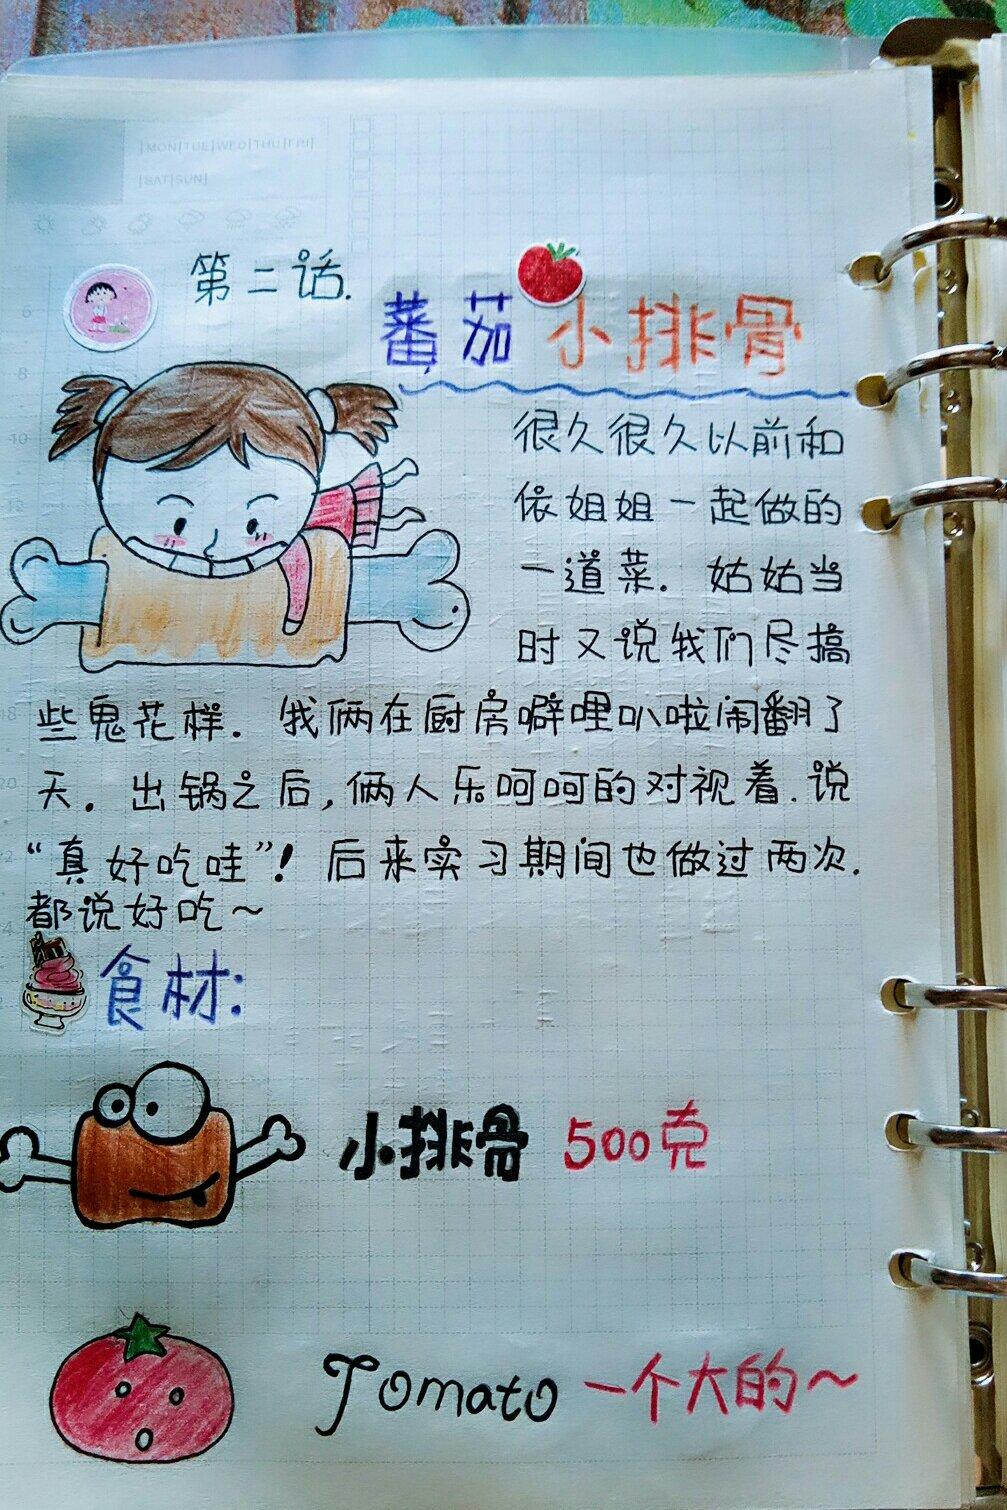 |MON|TUE|WED|THU|FRI|
|SAT|SUN|
第二话.
蕃茄小排骨
很久很久以前和
依姐姐一起做的
一道菜. 姑姑当
时又说我们尽搞
些鬼花样. 我俩在厨房噼哩叭啦闹翻了
天. 出锅之后,俩人乐呵呵的对视着.说
“真好吃哇”! 后来实习期间也做过两次.
都说好吃~
食材:
小排骨 500克
Tomato 一个大的~